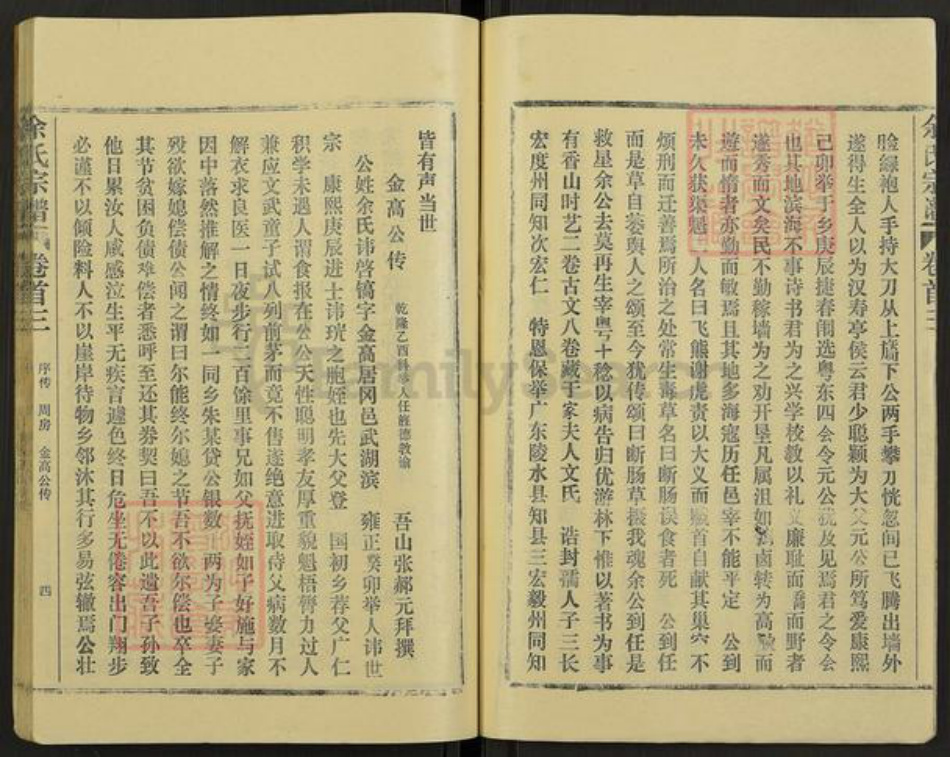 脸绿袍人手持大刀从上墙下公两手攀刀恍忽间已飞腾出墙外
遂得生全人以为汉寿亭侯云君少聪颖为大父元公所笃爱康熙
己卯举于乡庚辰捷春闱选粤东四会令元公犹及见焉君之令会
也其地滨海不事诗书君为之兴学校教以礼义廉耻而乔而野者
遂秀而文矣民不勤稼墙为之劝开垦凡属沮如卤转为高而
遊而惰者亦勤而敏焉且其地多海寇历任邑宰不能平定 公到
未久获渠魁 人名曰飞熊谢虎责以大义而首自献其巢穴不
烦刑而迁善焉所治之处常生毒草名曰断肠误食者死 公到任
而是草自萎舆人之颂至今犹传颂曰断肠草摄我魂余公到任是
救星余公去莫再生宰粤十稔以病告归优游林下惟以著书为事
有香山时艺二卷古文八卷藏于家夫人文氏 诰封孺人子三长
宏度州同知次宏仁 特恩保举广东陵水县知县三宏毅州同知
余氏宗谱 卷首三
皆有声当世
金高公传
乾隆乙酉科举人任旌德教谕 吾山张郝元拜撰
公姓余氏讳啓镐字金高居冈邑武湖滨 雍正癸卯举人讳世
宗 康熙庚辰进士讳珖之胞姪也先大父登 国初乡荐父广仁
积学未遇人谓食报在公公天性聪明孝友厚重貌魁梧膂力过人
兼应文武童子试八列前茅而竟不售遂绝意进取侍父病数月不
解衣求良医一日夜步行二百馀里事兄如父抚姪如子好施与家
因中落然推解之情终如一同乡朱某贷公银数 两为子娶妻子
殁欲嫁媳偿债公闻之谓曰尔能终尔媳之节吾不欲尔偿也卒全
其节贫困负债难偿者悉呼至还其券契曰吾不以此遗吾子孙致
他日累汝人咸感泣生平无疾言遽色终日危坐无倦容出门翔步
必谨不以倾险料人不以崖岸待物乡邻沐其行多易弦辙焉公壮
余氏宗谱 卷首三
序传 周房 金高公传
四
FamilySearch